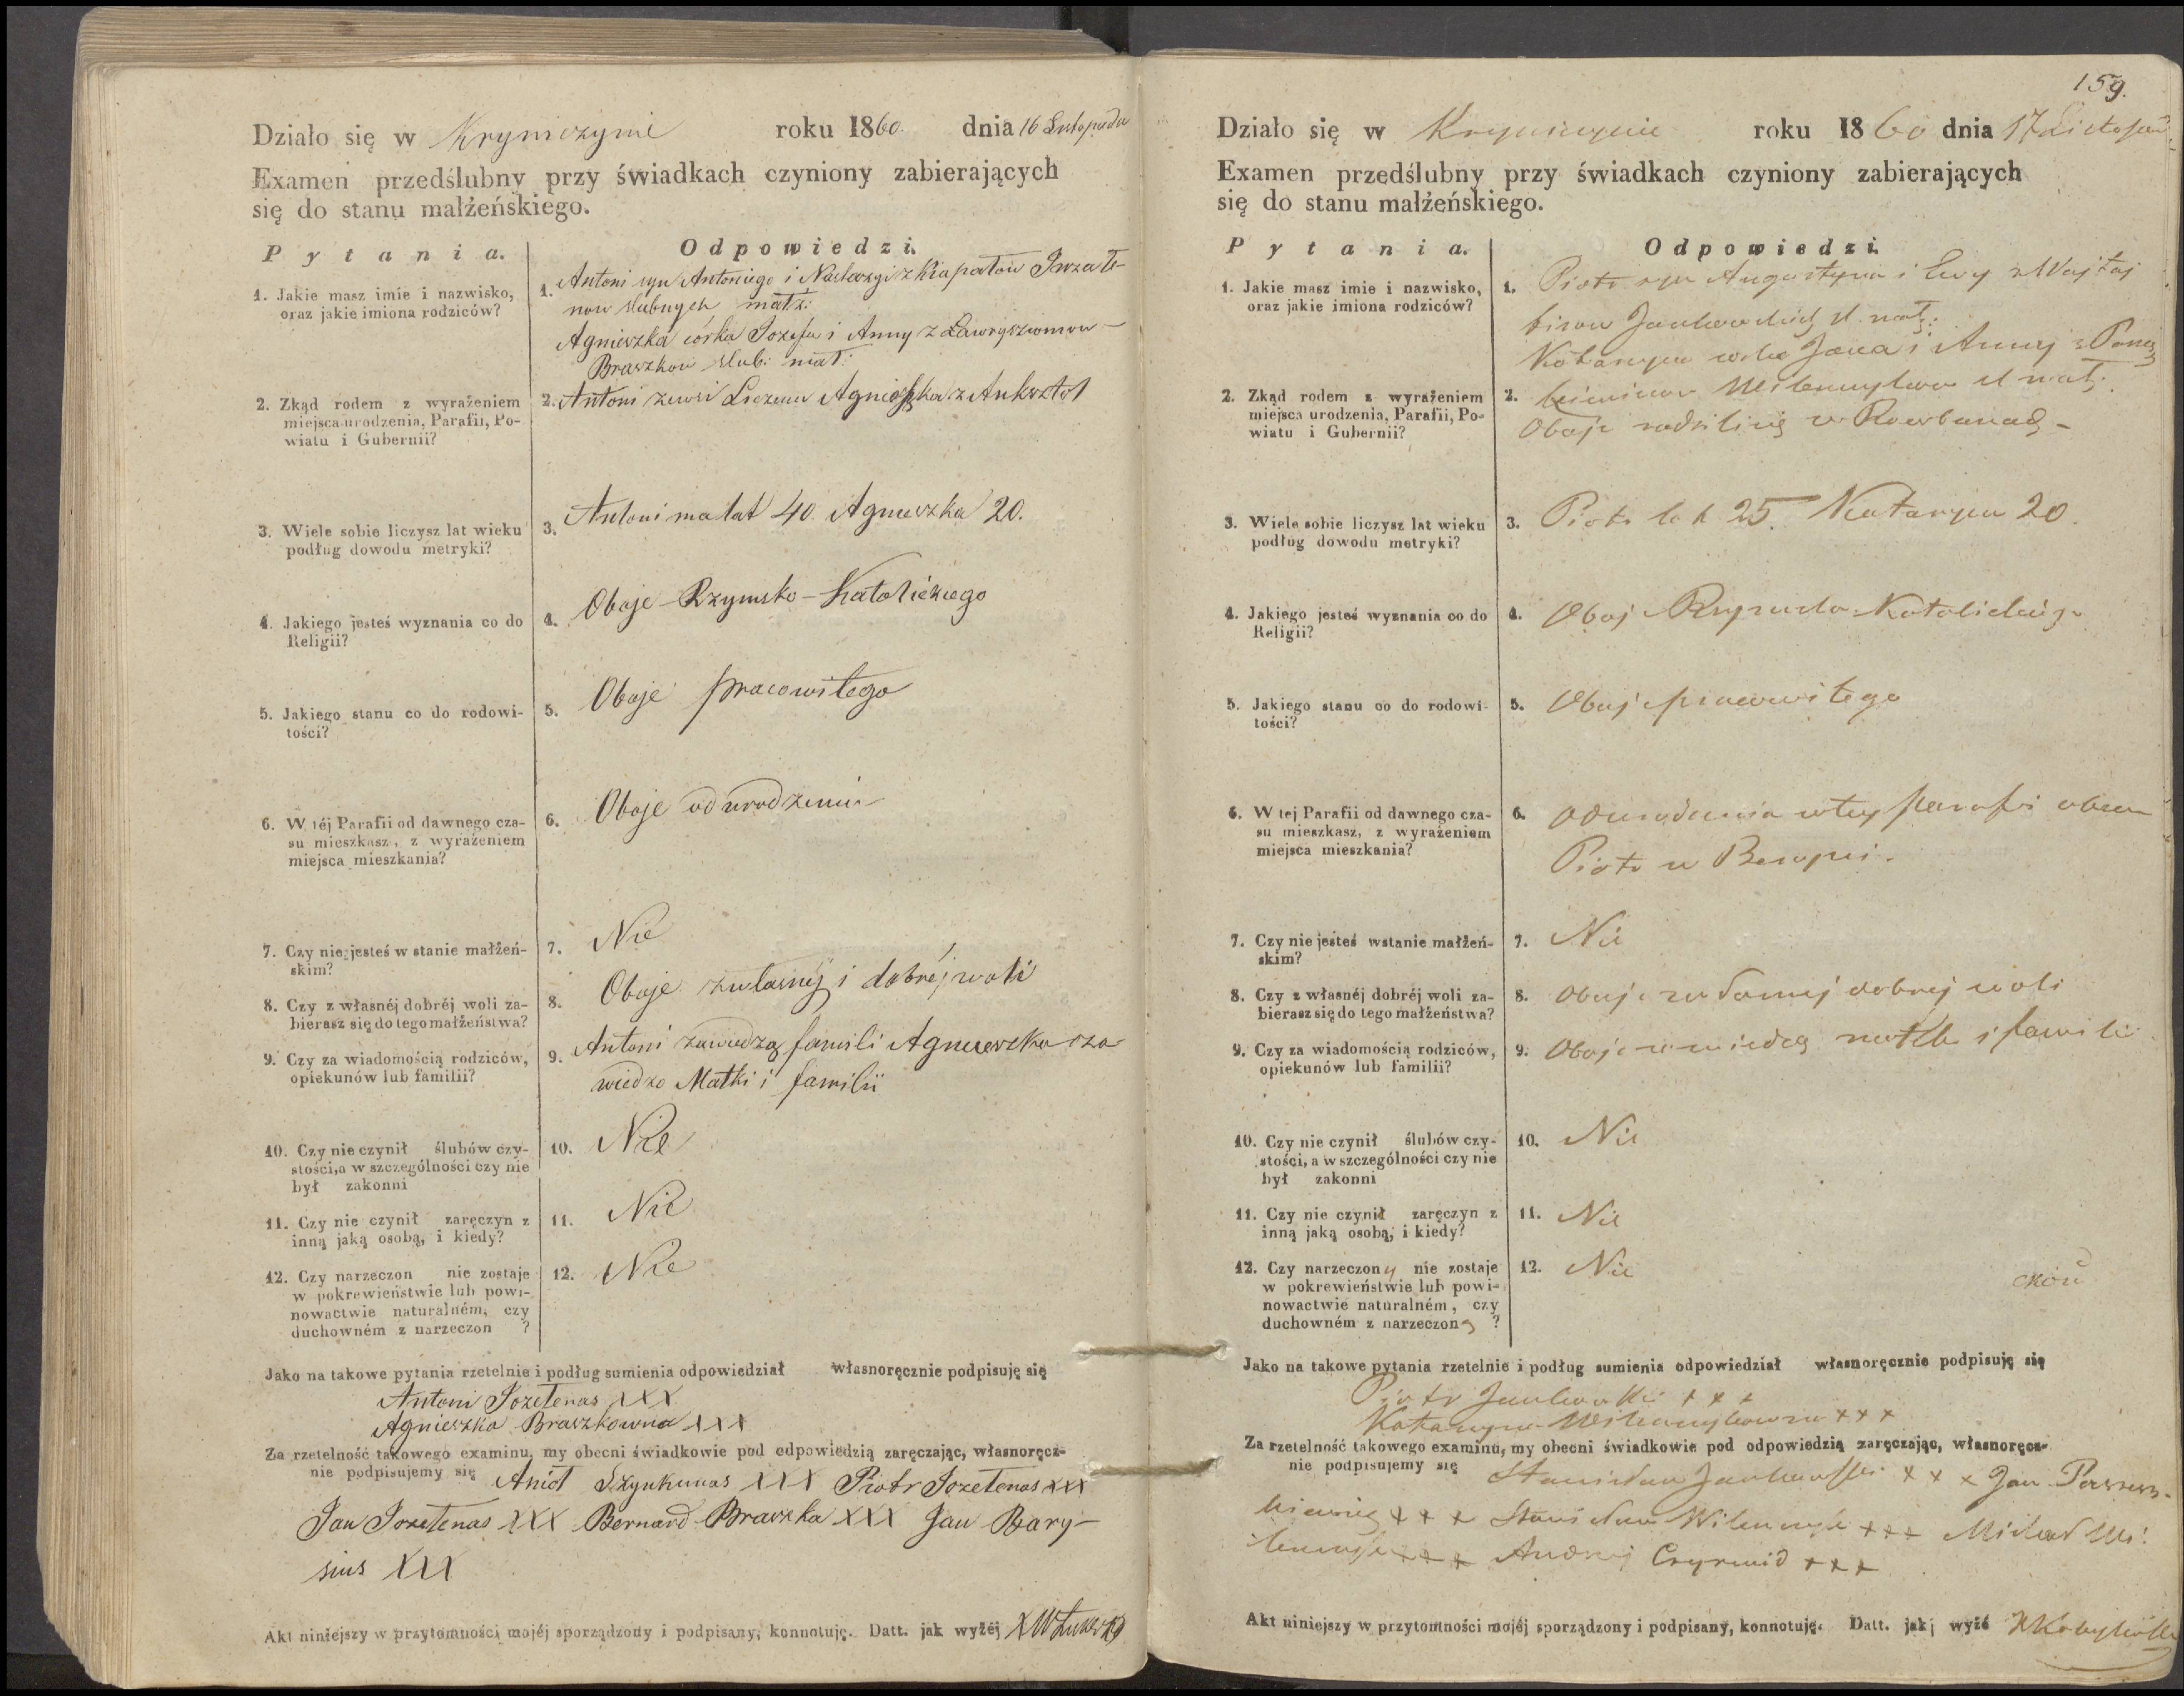 Działo się w Kryniczynie roku 1860. dnia 16 Listopada
Examen przedślubny przy świadkach czyniony zabierających
się do stanu małżeńskiego.
Pytania. Odpowiedzi.
1. Jakie masz imie i nazwisko,
oraz jakie imiona rodziców?
1. Antoni syn Antoniego i
now slubnych małż:
Agnieszka córka Jozefa i Anny z
Braszkow slub: mał:
2. Zkąd rodem z wyrażeniem
miejsca urodzenia, Parafii, Po-
wiatu i Gubernii?
2. Antoni zewsi Agnieszka z Auksztol
3. Wiele sobie liczysz lat wieku
podług dowodu metryki?
3. Antoni ma lat 40. Agnieszka 20.
4. Jakiego jesteś wyznania co do
Religii?
4. Oboje Rzymsko-Katolickiego
5. Jakiego stanu co do rodowi-
tości?
5. Oboje pracowitego
6. W téj Parafii od dawnego cza-
su mieszkasz, z wyrażeniem
miejsca mieszkania?
6. Oboje od urodzenia
7. Czy nie jesteś w stanie małżeń-
skim?
7. Nie
8. Czy z własnéj dobréj woli za-
bierasz się do tego małżeństwa?
8. Oboje zwlasnéj i dobréj woli
9. Czy za wiadomością rodziców,
opiekunów lub familii?
9. Antoni zawiedzą famili Agnieszka za
wiedzo Matki i familii
10. Czy nie czynił ślubów czy-
stości, a w szczególności czy nie
był zakonni
10. Nie
11. Czy nie czynił zaręczyn z
inną jaką osobą, i kiedy?
11. Nie
12. Czy narzeczon nie zostaje
w pokrewieństwie lub powi-
nowactwie naturalném, czy
duchowném z narzeczon ?
12. Nie
Jako na takowe pytania rzetelnie i podług sumienia odpowiedział własnoręcznie podpisuję się
Antoni Jozetenas XXX
Agnieszka Braszkowna XXX
Za rzetelność takowego examinu, my obecni świadkowie pod odpowiedzią zaręczając, własnoręcz-
nie podpisujemy się XXX Piotr Jozetenas XXX
Jan Jozetenas XXX Bernard Braszka XXX Jan Bary-
sius XXX
Akt niniejszy w przytomności mojéj sporządzony i podpisany, konnotuję. Datt. jak wyżéj
159.
Działo się w Kryniczynie roku 1860 dnia 17 Listopad
Examen przedślubny przy świadkach czyniony zabierających
się do stanu małżeńskiego.
Pytania. Odpowiedzi.
1. Jakie masz imie i nazwisko,
oraz jakie imiona rodziców?
1. Piotr syn Augustyna i Ewy z
Jankowskich sl. małż:
Katarzyna corka Jana i Anny z
2. Zkąd rodem z wyrażeniem
miejsca urodzenia, Parafii, Po-
wiatu i Gubernii?
2. sl małż.
Oboje rodzili się w
3. Wiele sobie liczysz lat wieku
podług dowodu metryki?
3. Piotr lat 25. Katarzyna 20.
4. Jakiego jesteś wyznania co do
Religii?
4. Oboje Rzymsko-Katolickiego
5. Jakiego stanu co do rodowi-
tości?
5. Oboje pracowitego
6. W tej Parafii od dawnego cza-
su mieszkasz, z wyrażeniem
miejsca mieszkania?
6. Od urodzenia w tey parafii
Piotr w
7. Czy nie jesteś wstanie małżeń-
skim?
7. Nie
8. Czy z własnéj dobréj woli za-
bierasz się do tego małżeństwa?
8. Oboje z własnej dobrej woli
9. Czy za wiadomością rodziców,
opiekunów lub familii?
9. Oboje i famili
10. Czy nie czynił ślubów czy-
stości, a w szczególności czy nie
był zakonni
10. Nie
11. Czy nie czynił zaręczyn z
inną jaką osobą, i kiedy?
11. Nie
12. Czy narzeczony nie zostaje
w pokrewieństwie lub powi-
nowactwie naturalném, czy
duchowném z narzeczoną ?
12. Nie
Jako na takowe pytania rzetelnie i podług sumienia odpowiedział własnoręcznie podpisuję się
Piotr Jankowski +++
Katarzyna +++
Za rzetelność takowego examinu, my obecni świadkowie pod odpowiedzią zaręczając, własnoręcz-
nie podpisujemy się Stanisław Jankowski +++ Jan
+++ Stanisław +++ Michał
+++ Andrzej +++
Akt niniejszy w przytomności mojéj sporządzony i podpisany, konnotuję. Datt. jak wyżé